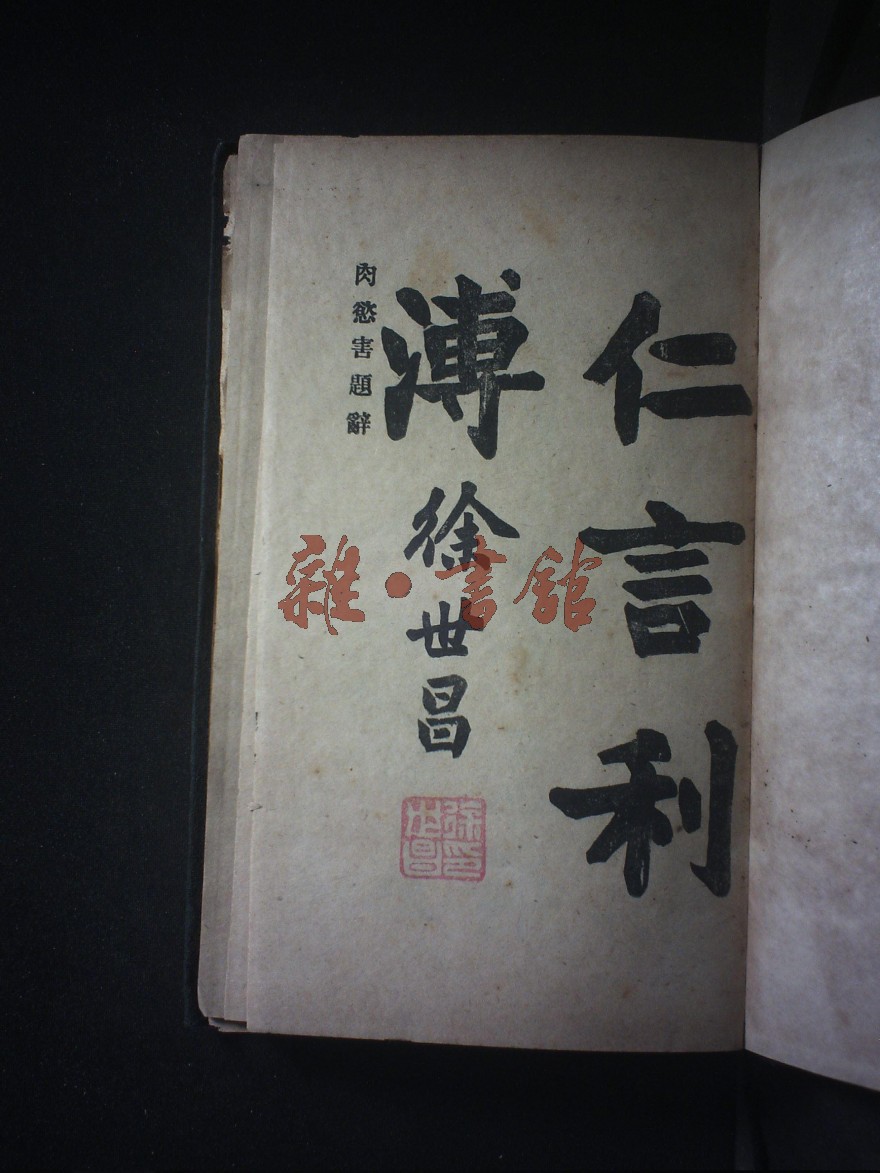 仁言利
溥
徐世昌
徐世昌印
肉慾害題辭
雜·書館